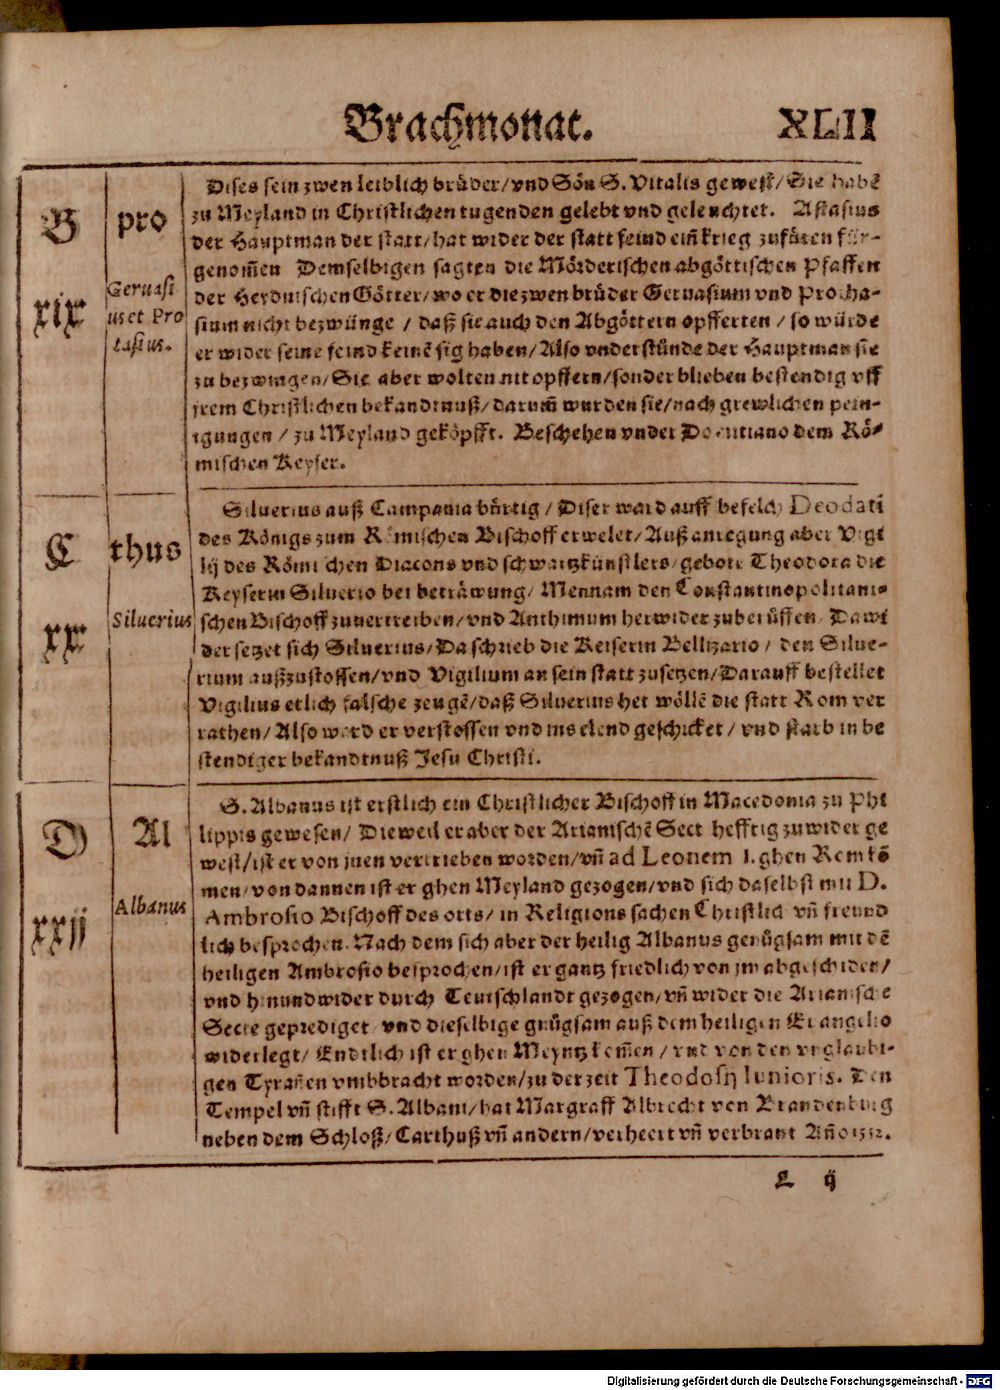 Brachmonat. XLII
B
xix
pro
Geruasi
us et Pro
tasius.
Dises sein zwen leiblich brůder/vnd Sön S. Vitalis gewest/Sie habē
zu Meyland in Christlichen tugenden gelebt vnd geleuchtet. Astasius
der Hauptman der statt/hat wider der statt feind ein̄ krieg zufüren für-
genom̄en Demselbigen sagten die Mörderischen abgöttischen Pfaffen
der Heydnischen Götter/wo er die zwen brüder Geruasium vnd Protha-
sium nicht bezwünge / daß sie auch den Abgöttern opfferten / so würde
er wider seine feind keinē sig haben/Also vnderstünde der Hauptman sie
zu bezwingen/Sie aber wolten nit opffern/sonder blieben bestendig vff
jrem Christlichen bekandtnuß/darum̄ wurden sie/nach grewlichen pein-
igungen / zu Meyland geköpfft. Beschehen vnder Domitiano dem Rö-
mischen Keyser.
C
xx
thus
Siluerius
Siluerius auß Campania bürtig / Diser ward auff befelch Deodati
des Königs zum Römischen Bischoff erwelet/Auß anregung aber Vigi
lij des Römischen Diacons vnd schwartzkünstlers/gebote Theodora die
Keyserin Siluerio bei beträwung/ Mennam den Constantinopolitani-
schen Bischoff zuuertreiben/vnd Anthimum herwider zuberüffen/ Dawi
der setzet sich Siluerius/Da schrieb die Keiserin Bellizario / den Silue-
rium außzustossen/vnd Vigilium an sein statt zusetzen/Darauff bestellet
Vigilius etlich falsche zeugē/daß Siluerius het wöllē die statt Rom ver
rathen/Also ward er verstossen vnd ins elend geschicket / vnd starb in be
stendiger bekandtnuß Jesu Christi.
D
xxij
Al
Albanus
S. Albanus ist erstlich ein Christlicher Bischoff in Macedonia zu Phi
lippis gewesen/ Dieweil er aber der Arianischē Sect hefftig zuwider ge
west/ist er von jnen vertrieben worden/vn̄ ad Leonem I. ghen Rem kō
men/von dannen ist er ghen Meyland gezogen/vnd sich daselbst mit D.
Ambrosio Bischoff des orts/ in Religions sachen Christlich vn̄ freund
lich besprochen. Nach dem sich aber der heilig Albanus genůgsam mit dē
heiligen Ambrosio besprochen/ist er gantz friedlich von jm abgeschiden/
vnd hin vnd wider durch Teutschlandt gezogen/vn̄ wider die Arianische
Secte geprediget vnd dieselbige gnůgsam auß dem heiligen Euangelio
widerlegt/ Endtlich ist er ghen Meyntz kom̄en / vnd von den vnglaubi-
gen Tyran̄en vmbbracht worden/zu der zeit Theodosij Iunioris. Den
Tempel vn̄ stifft S. Albani/hat Margraff Albrecht von Brandenburg
neben dem Schloß/Carthuß vn̄ andern/verheert vn̄ verbrant An̄o 1552.
L ij
Digitalisierung gefördert durch die Deutsche Forschungsgemeinschaft - DFG